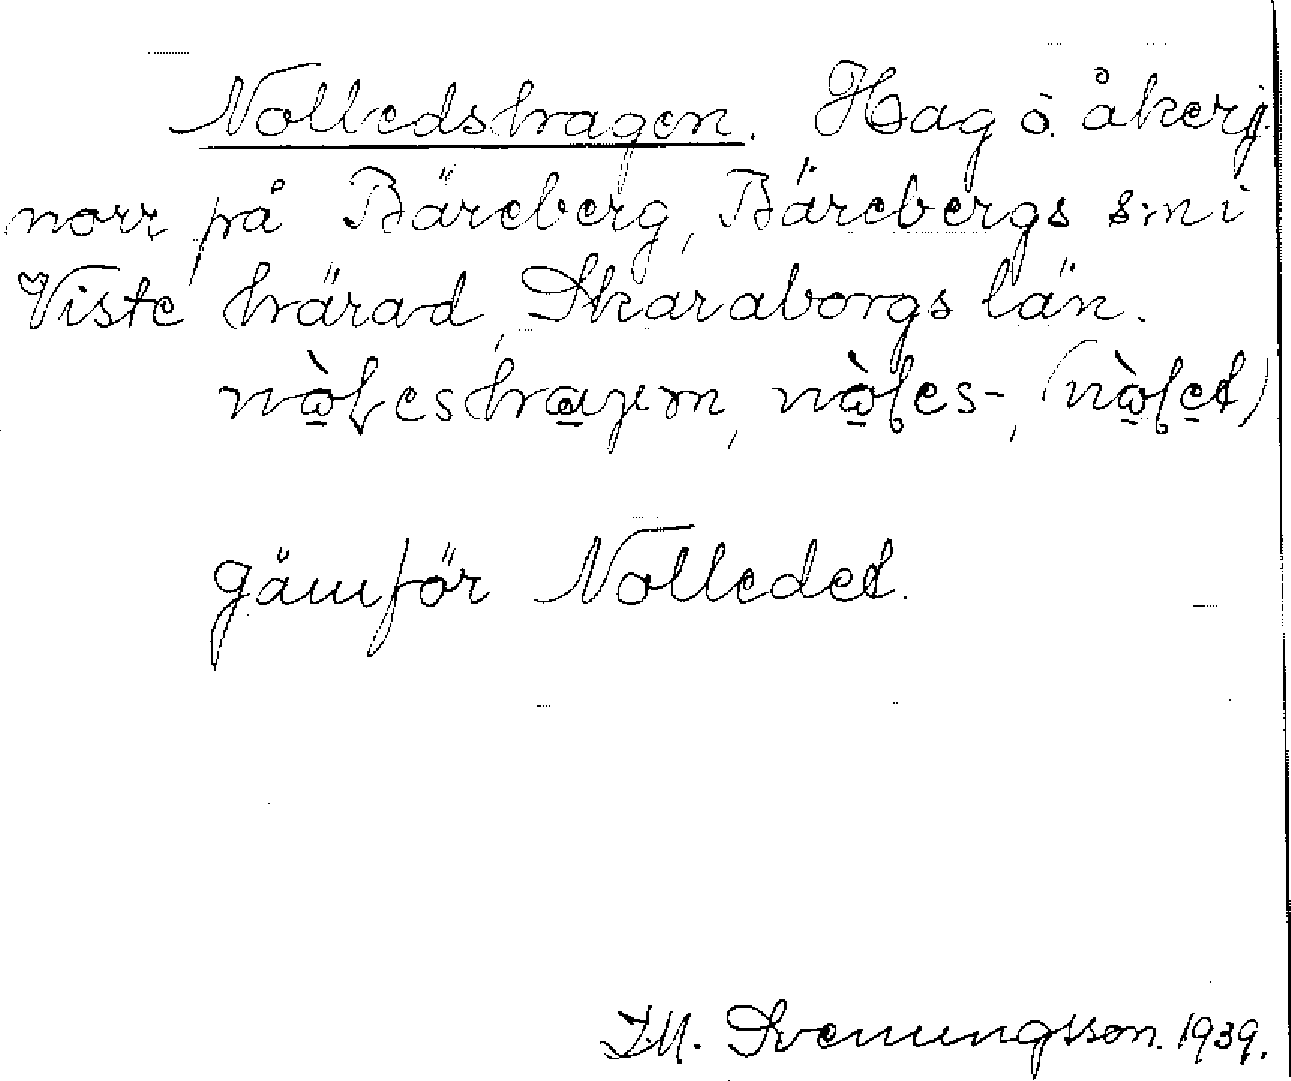 Nolledshagen. Hag o. åkerj.
norr på Bäreberg, Bärebergs sn i
Viste härad, Skaraborgs län.
nòləshagen, nòləs-, (nòlet)
Jämför Nolledet.
I.M. Svenungsson. 1939.